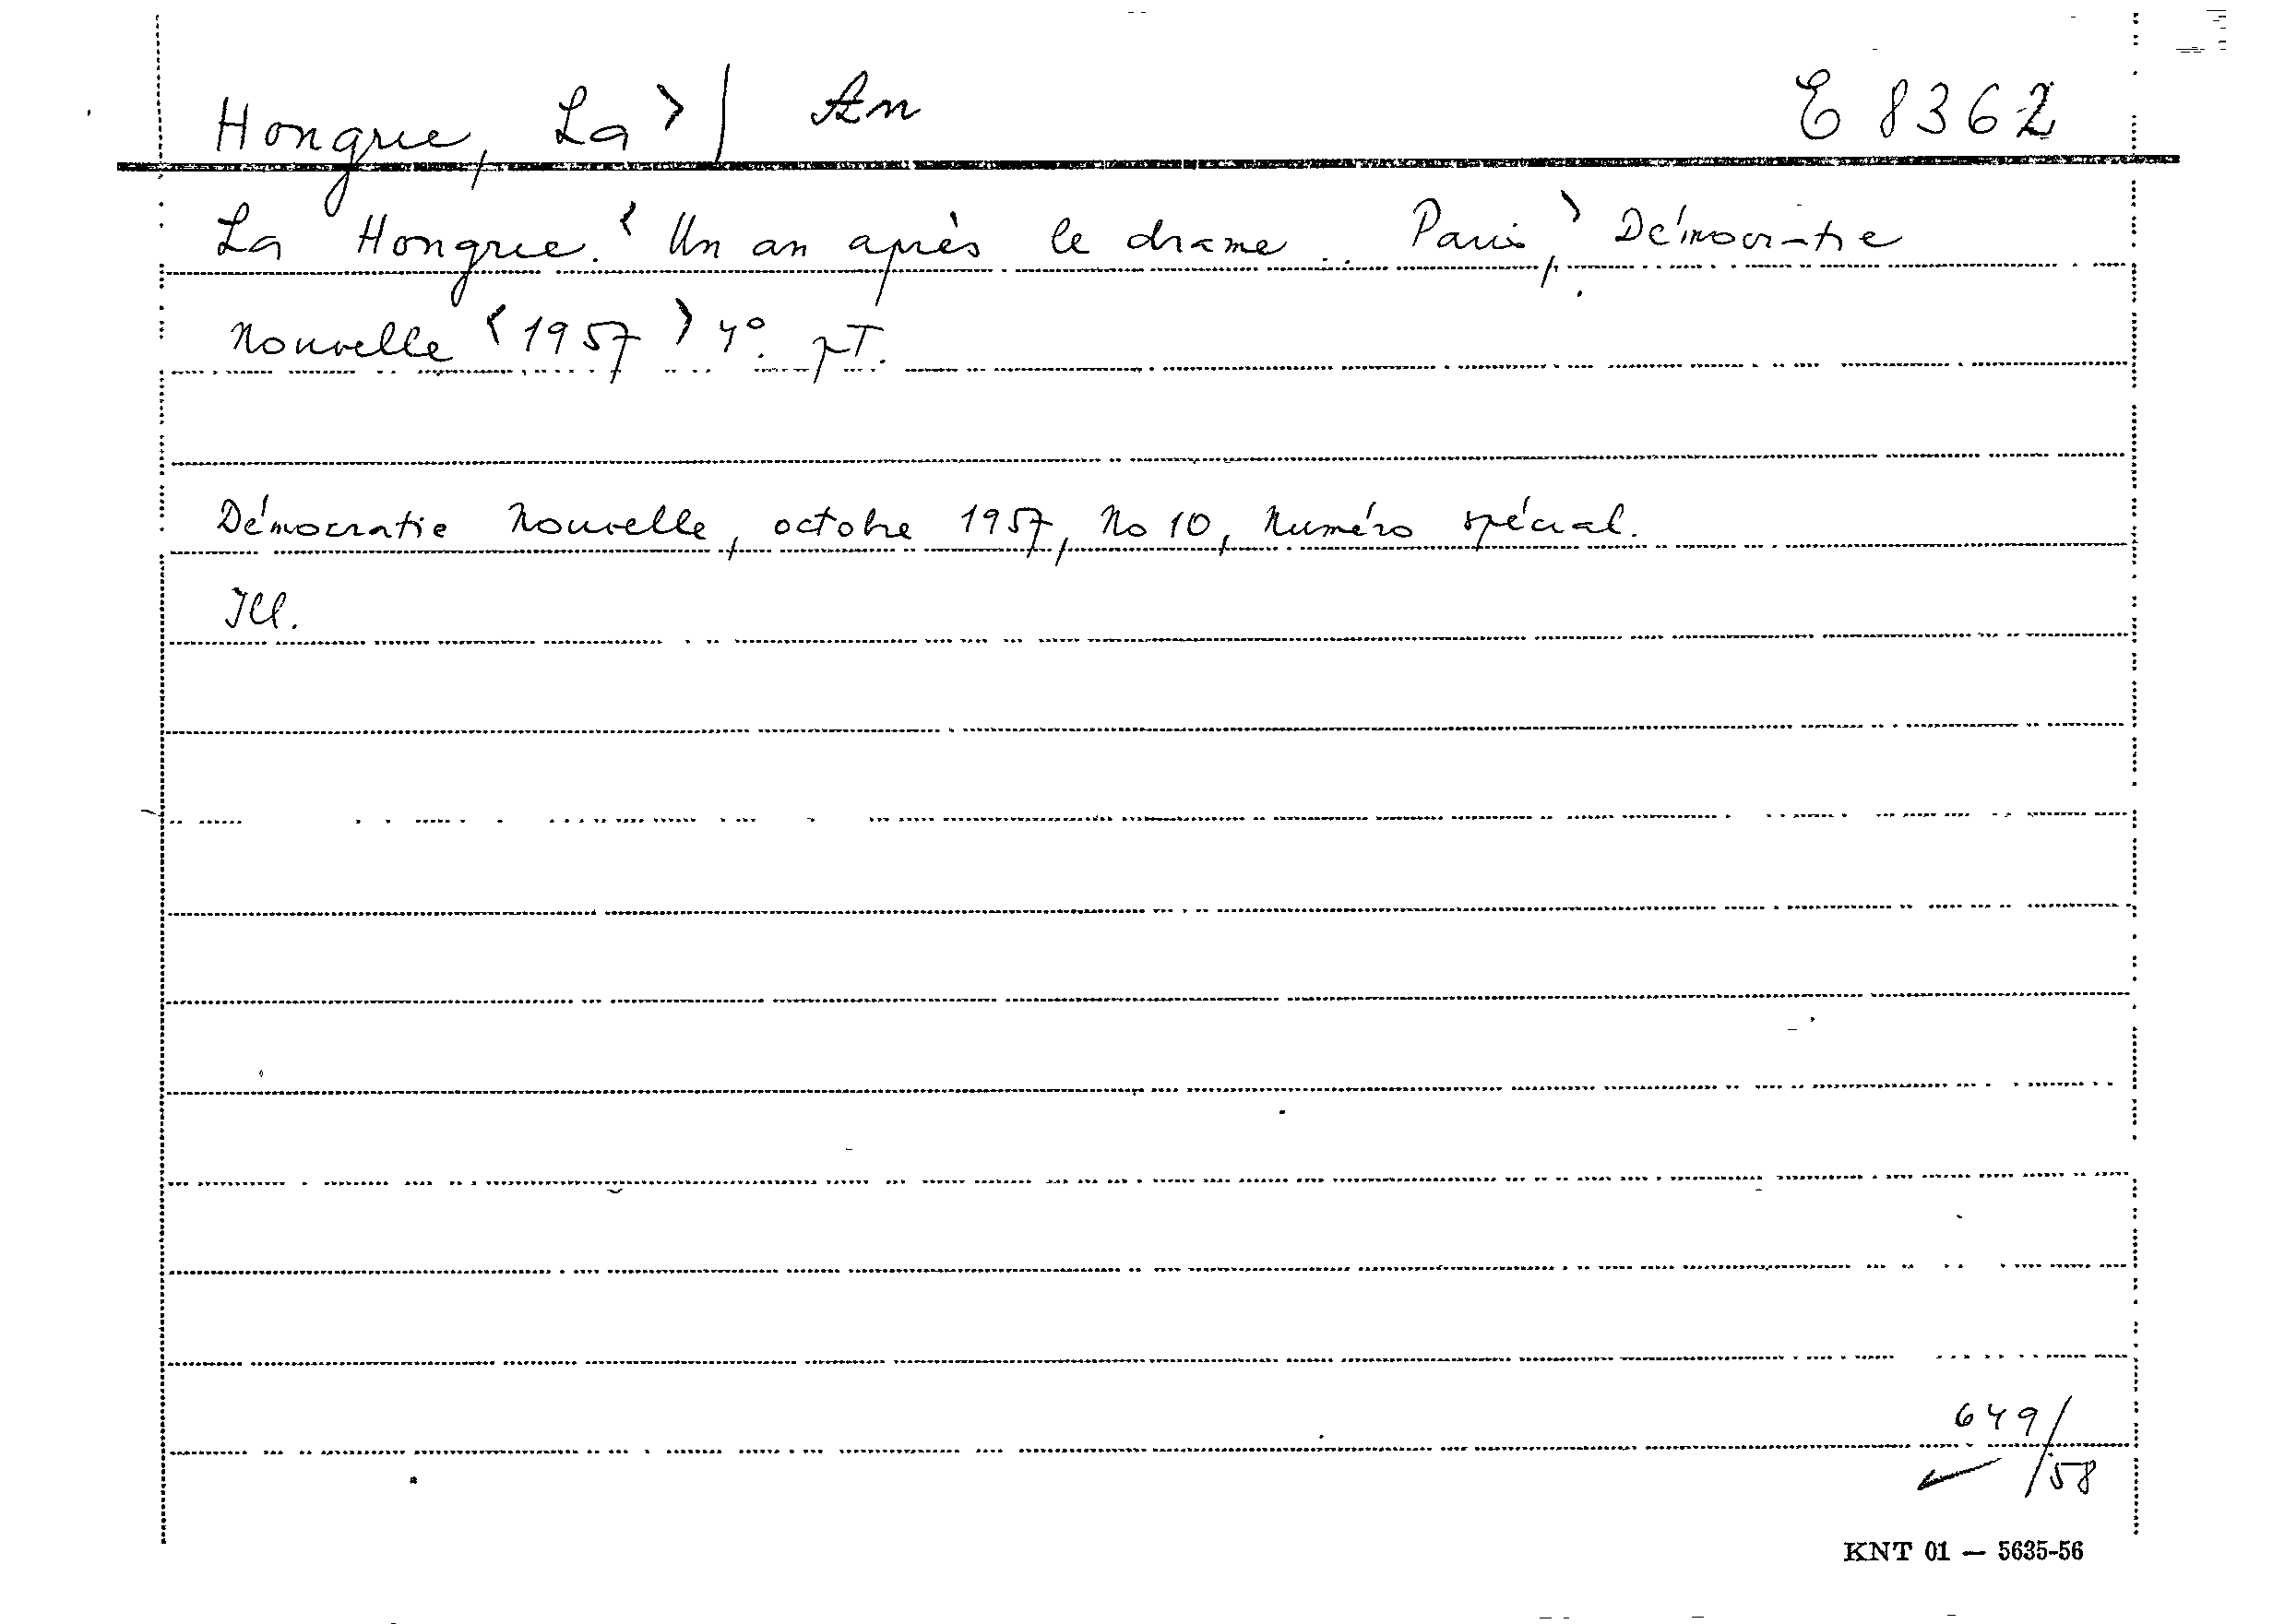 Hongrie, La > / An E 8362
La Hongrie. < Un an après le drame .. Paris, > Démocratie
Nouvelle < 1957 > 4°. pT.
Démocratie Nouvelle, octobre 1957, No 10, Numéro spécial.
Ill.
649/
/58
KNT 01 — 5635-56